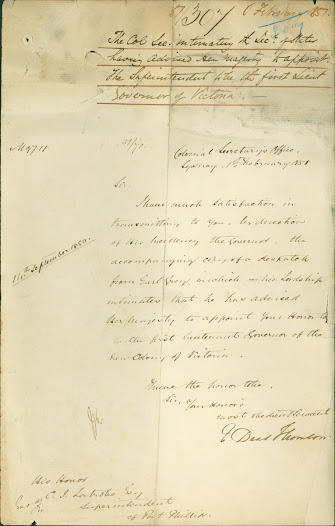 51/307 6 February 1851
The Col. Sec. intimating the Secy. of State
having advised Her Majesty to appoint
The Superintendent to be the first Lieut
Governor of Victoria.
Colonial Secretary's Office,
Sydney, 1st February 1851
Sir
I have much satisfaction in
transmitting to you, by direction
of His Excellency the Governor, the
accompanying copy of a despatch
from Earl Grey, in which His Lordship
intimates that he has advised
Her Majesty to appoint Your Honor to
be the first Lieutenant Governor of the
new Colony of Victoria.
September 1850
I have the honor to be,
Sir,
Your Honor's
most obedient servant
E Deas Thomson
His Honor
C. J. Latrobe, Esq
Superintendent
of Port Phillip.